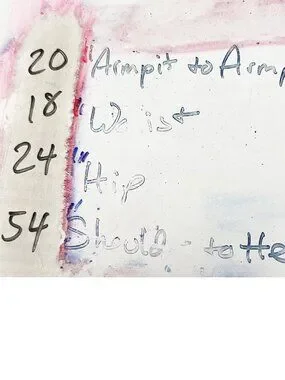 20" Armpit to Armp
18" Waist
24" Hip
54" Should - to He